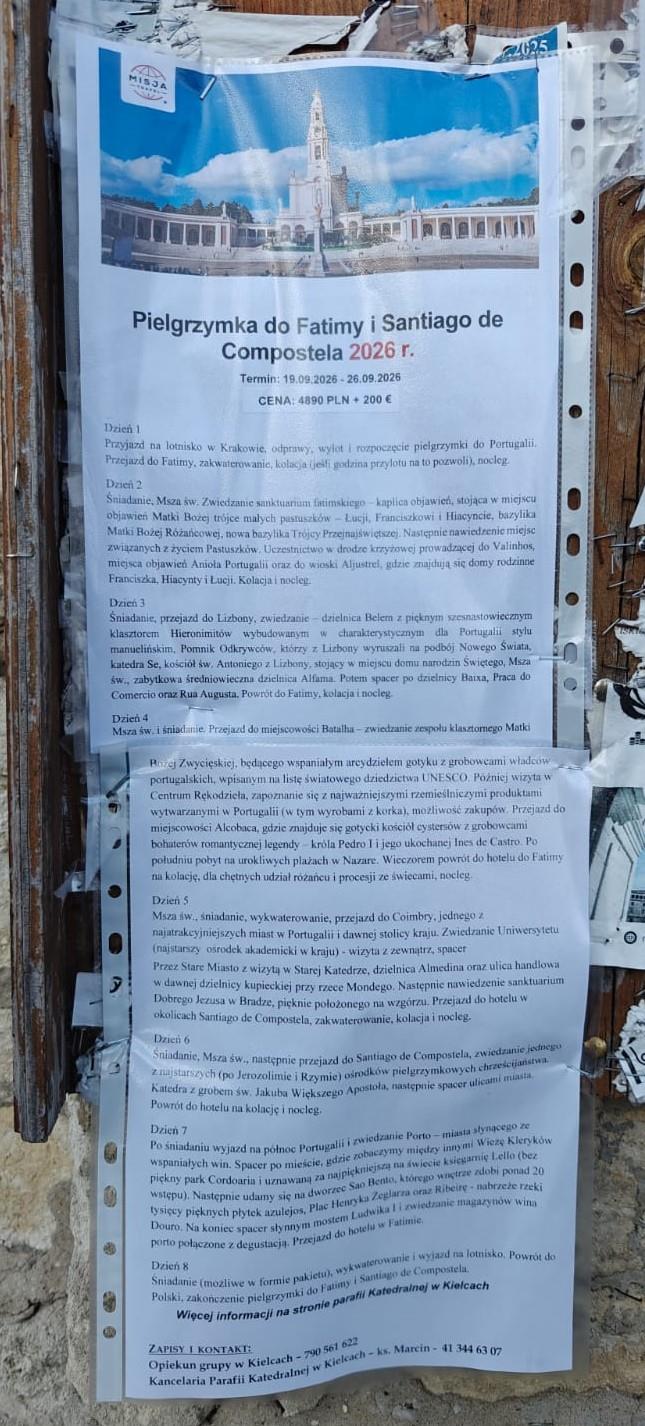 2025
MISJA
TRAVEL
Pielgrzymka do Fatimy i Santiago de
Compostela 2026 r.
Termin: 19.09.2026 - 26.09.2026
CENA: 4890 PLN + 200 €
Dzień 1
Przyjazd na lotnisko w Krakowie, odprawy, wylot i rozpoczęcie pielgrzymki do Portugalii.
Przejazd do Fatimy, zakwaterowanie, kolacja (jeśli godzina przylotu na to pozwoli), nocleg.
Dzień 2
Śniadanie, Msza św. Zwiedzanie sanktuarium fatimskiego – kaplica objawień, stojąca w miejscu
objawień Matki Bożej trójce małych pastuszków – Łucji, Franciszkowi i Hiacyncie, bazylika
Matki Bożej Różańcowej, nowa bazylika Trójcy Przenajświętszej. Następnie nawiedzenie miejsc
związanych z życiem Pastuszków. Uczestnictwo w drodze krzyżowej prowadzącej do Valinhos,
miejsca objawień Anioła Portugalii oraz do wioski Aljustrel, gdzie znajdują się domy rodzinne
Franciszka, Hiacynty i Łucji. Kolacja i nocleg.
Dzień 3
Śniadanie, przejazd do Lizbony, zwiedzanie – dzielnica Belem z pięknym szesnastowiecznym
klasztorem Hieronimitów wybudowanym w charakterystycznym dla Portugalii stylu
manuelińskim, Pomnik Odkrywców, którzy z Lizbony wyruszali na podbój Nowego Świata,
katedra Se, kościół św. Antoniego z Lizbony, stojący w miejscu domu narodzin Świętego, Msza
św., zabytkowa średniowieczna dzielnica Alfama. Potem spacer po dzielnicy Baixa, Praca do
Comercio oraz Rua Augusta. Powrót do Fatimy, kolacja i nocleg.
Dzień 4
Msza św. i śniadanie. Przejazd do miejscowości Batalha – zwiedzanie zespołu klasztornego Matki
Bożej Zwycięskiej, będącego wspaniałym arcydziełem gotyku z grobowcami władców
portugalskich, wpisanym na listę światowego dziedzictwa UNESCO. Później wizyta w
Centrum Rękodzieła, zapoznanie się z najważniejszymi rzemieślniczymi produktami
wytwarzanymi w Portugalii (w tym wyrobami z korka), możliwość zakupów. Przejazd do
miejscowości Alcobaca, gdzie znajduje się gotycki kościół cystersów z grobowcami
bohaterów romantycznej legendy – króla Pedro I i jego ukochanej Ines de Castro. Po
południu pobyt na urokliwych plażach w Nazare. Wieczorem powrót do hotelu do Fatimy
na kolację, dla chętnych udział różańcu i procesji ze świecami, nocleg.
Dzień 5
Msza św., śniadanie, wykwaterowanie, przejazd do Coimbry, jednego z
najatrakcyjniejszych miast w Portugalii i dawnej stolicy kraju. Zwiedzanie Uniwersytetu
(najstarszy ośrodek akademicki w kraju) - wizyta z zewnątrz, spacer
Przez Stare Miasto z wizytą w Starej Katedrze, dzielnica Almedina oraz ulica handlowa
w dawnej dzielnicy kupieckiej przy rzece Mondego. Następnie nawiedzenie sanktuarium
Dobrego Jezusa w Bradze, pięknie położonego na wzgórzu. Przejazd do hotelu w
okolicach Santiago de Compostela, zakwaterowanie, kolacja i nocleg.
Dzień 6
Śniadanie, Msza św., następnie przejazd do Santiago de Compostela, zwiedzanie jednego
z najstarszych (po Jerozolimie i Rzymie) ośrodków pielgrzymkowych chrześcijaństwa.
Katedra z grobem św. Jakuba Większego Apostoła, następnie spacer ulicami miasta.
Powrót do hotelu na kolację i nocleg.
Dzień 7
Po śniadaniu wyjazd na północ Portugalii i zwiedzanie Porto – miasta słynącego ze
wspaniałych win. Spacer po mieście, gdzie zobaczymy między innymi Wieżę Kleryków
piękny park Cordoaria i uznawaną za najpiękniejszą na świecie księgarnię Lello (bez
wstępu). Następnie udamy się na dworzec Sao Bento, którego wnętrze zdobi ponad 20
tysięcy pięknych płytek azulejos, Plac Henryka Żeglarza oraz Ribeirę - nabrzeże rzeki
Douro. Na koniec spacer słynnym mostem Ludwika I i zwiedzanie magazynów wina
porto połączone z degustacją. Przejazd do hotelu w Fatimie.
Dzień 8
Śniadanie (możliwe w formie pakietu), wykwaterowanie i wyjazd na lotnisko. Powrót do
Polski, zakończenie pielgrzymki do Fatimy i Santiago de Compostela.
Więcej informacji na stronie parafii Katedralnej w Kielcach
ZAPISY I KONTAKT:
Opiekun grupy w Kielcach – 790 561 622
Kancelaria Parafii Katedralnej w Kielcach – ks. Marcin - 41 344 63 07